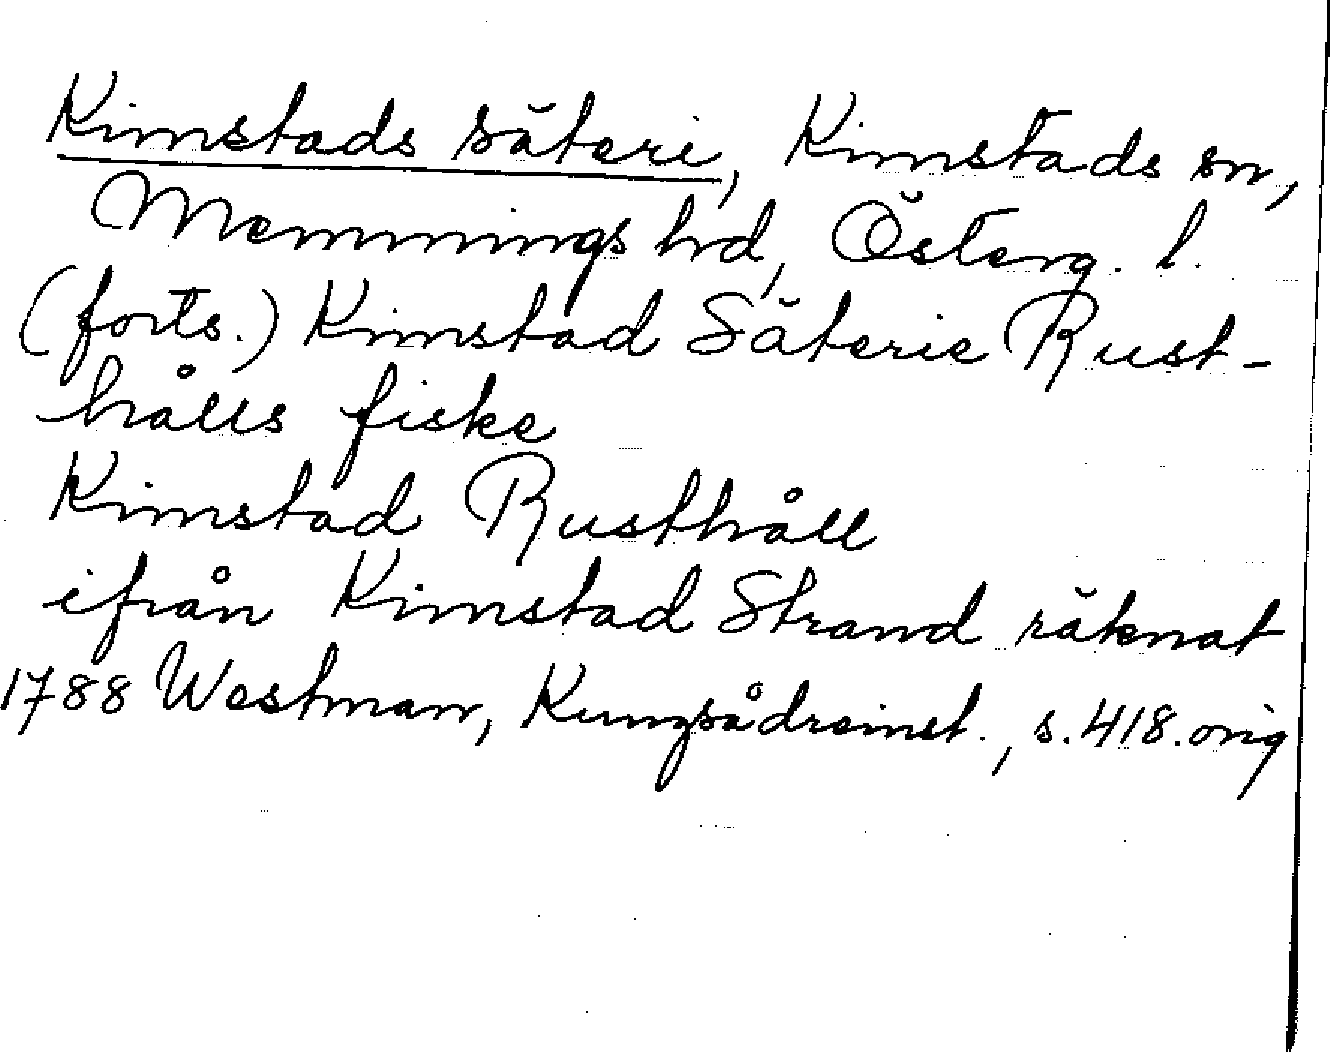 Kimstads säteri, Kimstads sn,
Memmings hrd, Österg. l.
(forts.) Kimstad Säterie Rust-
hålls fiske
Kimstad Rusthåll
ifrån Kimstad Strand räknat
1788 Westman, Kungsådreinst., s. 418. orig